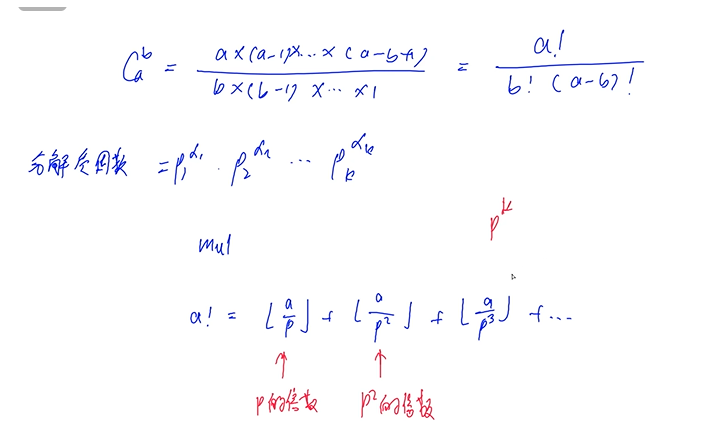 C_a^b = a×(a-1)×…×(a-b+1) / b×(b-1)×…×1 = a! / b!(a-b)!
分解质因数 = p_1^{α_1} · p_2^{α_2} … p_k^{α_k}
p^k
mul
a! = ⌊a/p⌋ + ⌊a/p^2⌋ + ⌊a/p^3⌋ + …
p的倍数 p^2的倍数